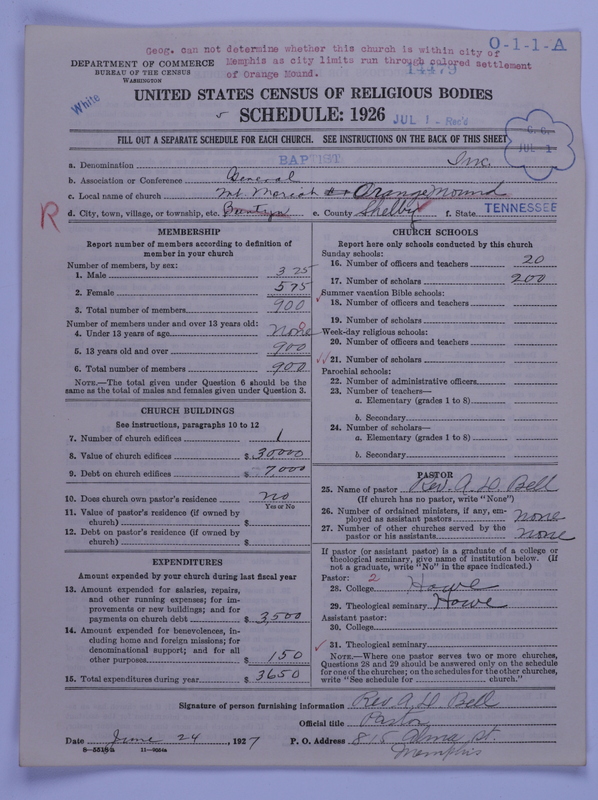 O-1-1-A
Geog. can not determine whether this church is within city of
Memphis as city limits run through colored settlement
of Orange Mound.
14479
DEPARTMENT OF COMMERCE
BUREAU OF THE CENSUS
WASHINGTON
White
UNITED STATES CENSUS OF RELIGIOUS BODIES
SCHEDULE: 1926
JUL 1 - Rec'd
FILL OUT A SEPARATE SCHEDULE FOR EACH CHURCH. SEE INSTRUCTIONS ON THE BACK OF THIS SHEET
JUL 1
a. Denomination BAPTIST Inc.
b. Association or Conference General
c. Local name of church Mt Moriah Orange Mound
R
d. City, town, village, or township, etc. Buntyn e. County Shelby f. State TENNESSEE
MEMBERSHIP
Report number of members according to definition of
member in your church
Number of members, by sex:
1. Male 325
2. Female 575
3. Total number of members 900
Number of members under and over 13 years old:
4. Under 13 years of age None
5. 13 years old and over 900
6. Total number of members 900
NOTE.—The total given under Question 6 should be the
same as the total of males and females given under Question 3.
CHURCH BUILDINGS
See instructions, paragraphs 10 to 12
7. Number of church edifices 1
8. Value of church edifices $ 30,000
9. Debt on church edifices $ 7,000
10. Does church own pastor's residence no
Yes or No
11. Value of pastor's residence (if owned by
church) $
12. Debt on pastor's residence (if owned by
church) $
EXPENDITURES
Amount expended by your church during last fiscal year
13. Amount expended for salaries, repairs,
and other running expenses; for im-
provements or new buildings; and for
payments on church debt $ 3500
14. Amount expended for benevolences, in-
cluding home and foreign missions; for
denominational support; and for all
other purposes $ 150
15. Total expenditures during year $ 3650
CHURCH SCHOOLS
Report here only schools conducted by this church
Sunday schools:
16. Number of officers and teachers 20
17. Number of scholars 200
Summer vacation Bible schools:
18. Number of officers and teachers
19. Number of scholars
Week-day religious schools:
20. Number of officers and teachers
21. Number of scholars
Parochial schools:
22. Number of administrative officers
23. Number of teachers—
a. Elementary (grades 1 to 8)
b. Secondary
24. Number of scholars—
a. Elementary (grades 1 to 8)
b. Secondary
PASTOR
25. Name of pastor Rev. A. D. Bell
(If church has no pastor, write "None")
26. Number of ordained ministers, if any, em-
ployed as assistant pastors none
27. Number of other churches served by the
pastor or his assistants none
If pastor (or assistant pastor) is a graduate of a college or
theological seminary, give name of institution below. (If
not a graduate, write "No" in the space indicated.)
Pastor: 2
28. College Howe
29. Theological seminary Howe
Assistant pastor:
30. College
31. Theological seminary
NOTE.—Where one pastor serves two or more churches,
Questions 28 and 29 should be answered only on the schedule
for one of the churches; on the schedules for the other churches,
write "See schedule for church."
Signature of person furnishing information Rev A. D. Bell
Official title Pastor
Date June 24, 1927 P. O. Address 815 Alma St.
Memphis